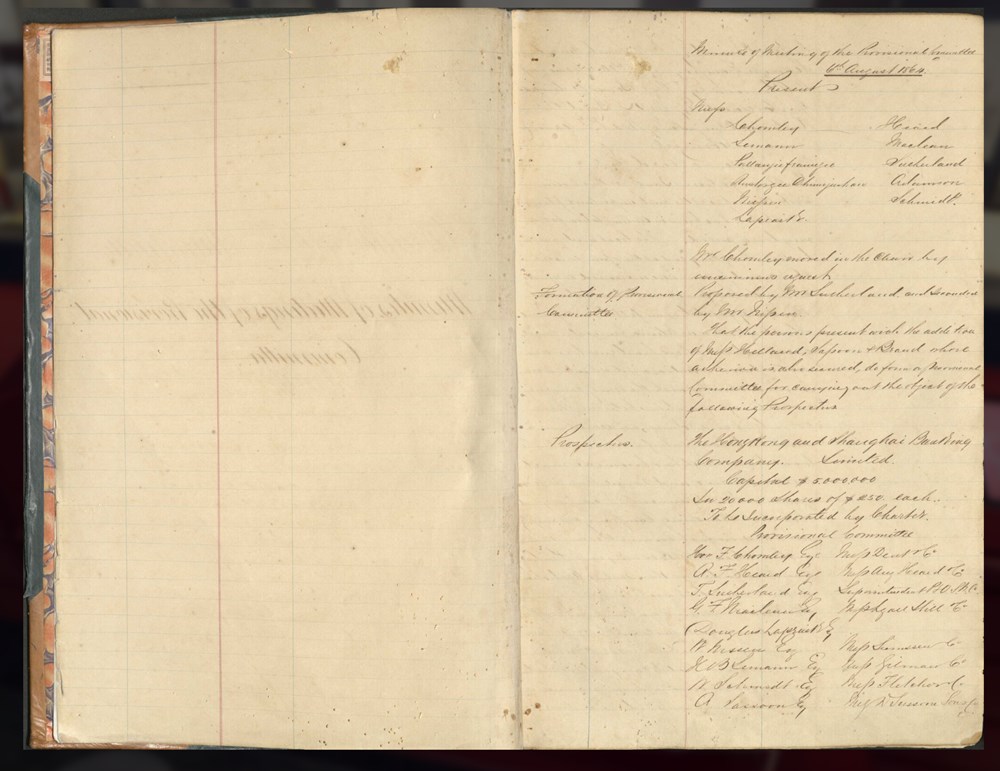 Minutes of Meeting of the Provisional Committee
6th August 1864
Present
Messrs
Chomley Heard
Lemann Maclean
Pallanjee Framjee Sutherland
Adamson
Nissen Schmidt
Lapraik
Mr Chomley moved in the Chair by
unanimous request
Formation of Provisional Proposed by Mr Sutherland and Seconded
Committee by Mr Nissen
That the persons present with the addition
of Messrs Helland, Sassoon & Brand whose
adhesion is also secured, do form a Provisional
Committee for carrying out the object of the
following Prospectus
Prospectus. The HongKong and Shanghai Banking
Company. Limited.
Capital $5,000,000
In 20,000 Shares of $250 each.
To be Incorporated by Charter.
Provisional Committee
Hon F. Chomley Esq Messrs Dent & Co
A. F. Heard Esq Messrs Aug Heard & Co
T. Sutherland Esq Superintendent P&O S.N.Co
G. F. Maclean Esq Messrs Lyall Still & Co
Douglas Lapraik Esq
W Nissen Esq Messrs Siemssen & Co
H B Lemann Esq Messrs Gilman & Co
W. Schmidt Esq Messrs Fletcher & Co
A Sassoon Esq Messrs D. Sassoon Sons & Co
Minutes of Meetings of the Provisional
Committee